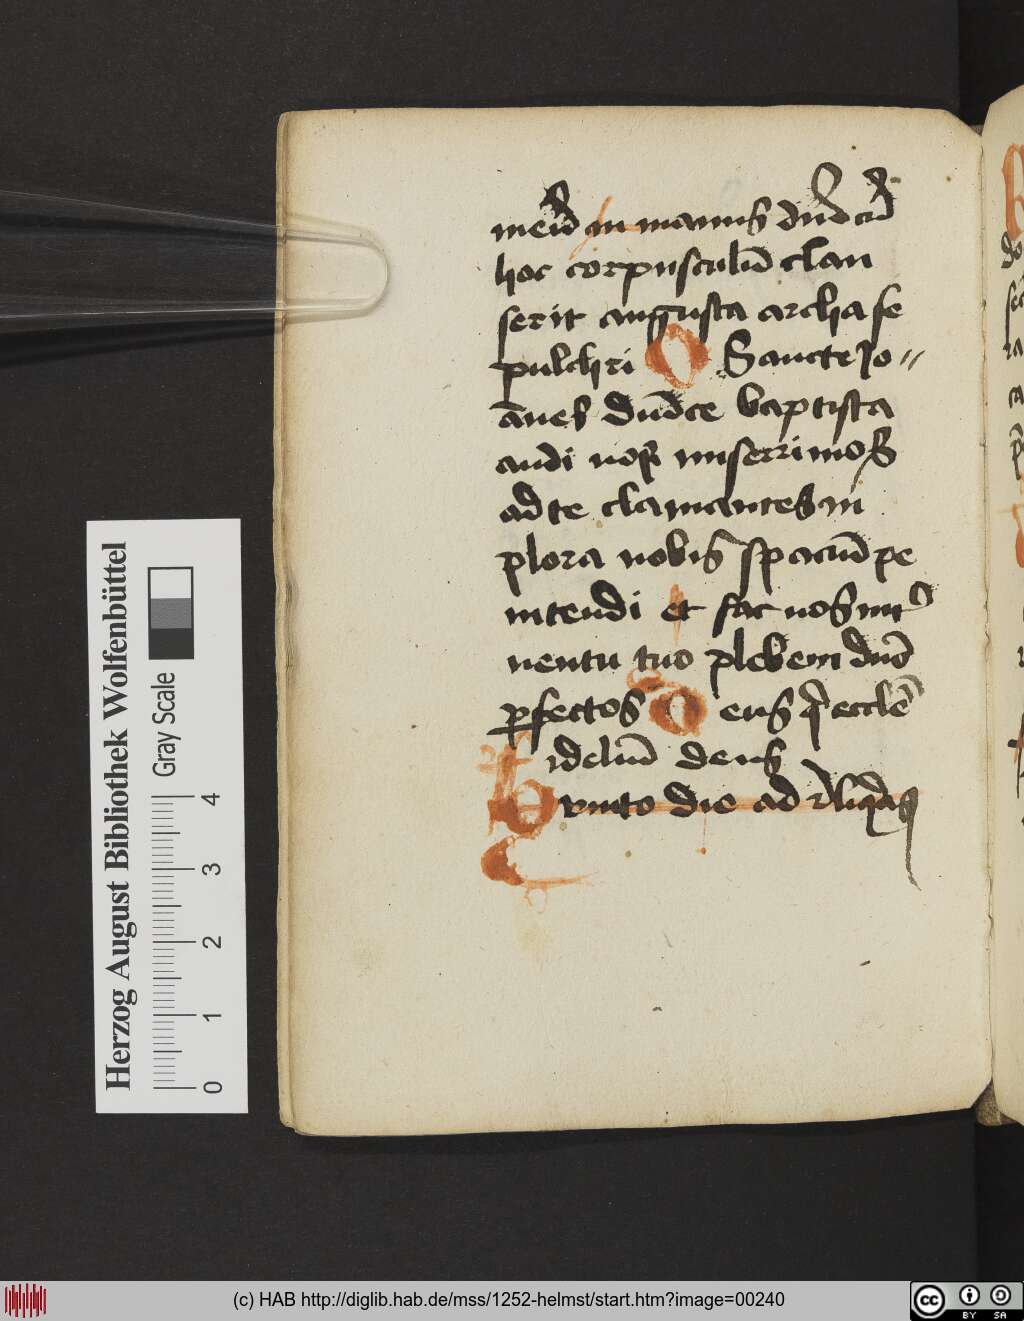 meū in manus dūdcū
hoc corpusculū clau
serit angusta archa se
pulchri O Sancte Jo〃
ānes dūdce baptista
audi nos miserrimos
ad te clamantes im
plora nobis spaciū pe
nitendi et fac nos int᷒
uentu tuo plebem dn̄o
ꝑfectos O eus q̄ ecclē
Fidelū deus
Quinto die ad r̄liq̄as
Herzog August Bibliothek Wolfenbüttel
Gray Scale
0 1 2 3 4
(c) HAB http://diglib.hab.de/mss/1252-helmst/start.htm?image=00240
cc BY SA